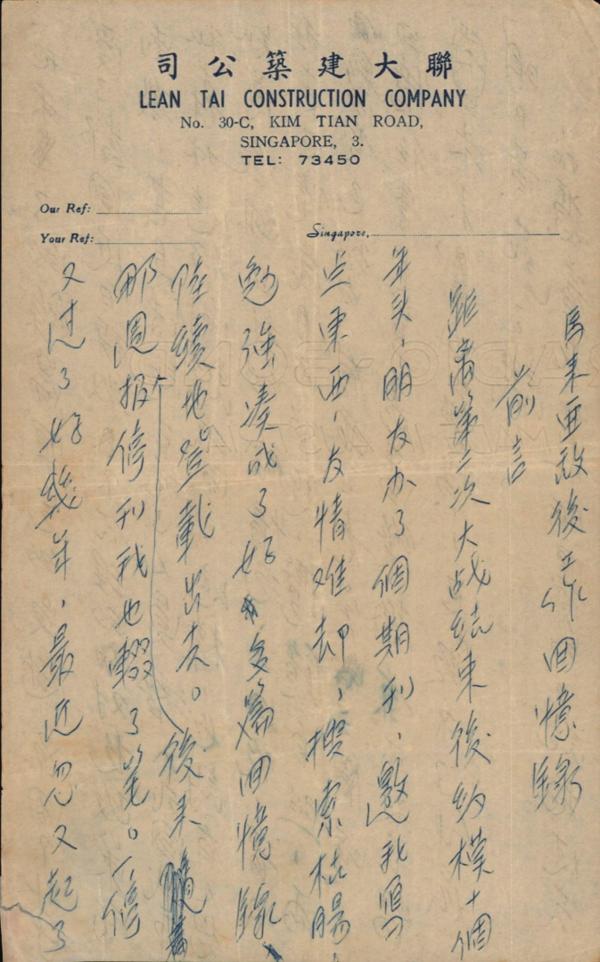 聯大建築公司
LEAN TAI CONSTRUCTION COMPANY
No. 30-C, KIM TIAN ROAD,
SINGAPORE, 3.
TEL: 73450
Our Ref:
Your Ref:
Singapore,
馬来亜敌後工作回憶錄
前言
距离第二次大战结束後約模十個
年头,朋友办了個期刊,邀我寫
点東西,友情难却,搜索枯腸,
勉強凑成了好多篇回憶錄
陸續地登載出去。後来
那週报停刊我也輟了笔。一停
又过了好幾年,最近忽又起了